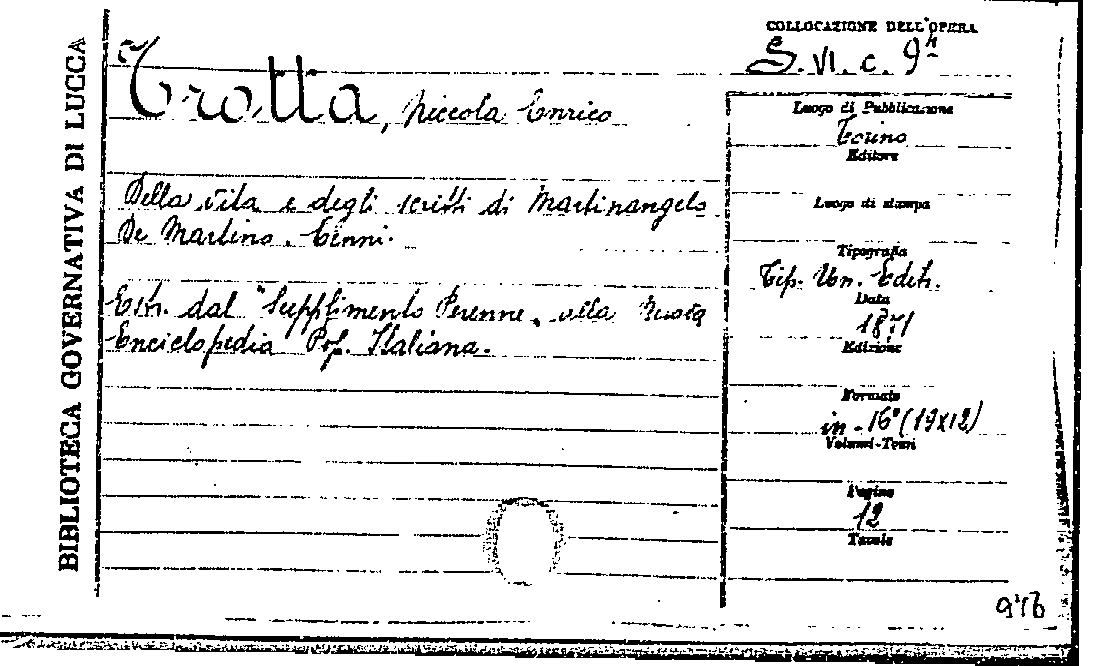 BIBLIOTECA GOVERNATIVA DI LUCCA
COLLOCAZIONE DELL'OPERA
S. VI. c. 9
Trotta, Niccola Enrico
Della vita e degli scritti di Martinangelo
De Martino. Cenni.
Estr. dal "Supplimento Perenne" alla Nuova
Enciclopedia Pop. Italiana.
Luogo di Pubblicazione
Torino
Editore
Luogo di stampa
Tipografia
Tip. Un. Edit.
Data
1871
Edizione
Formato
in-16° (19x12)
Volumi-Tomi
Pagine
12
Tavole